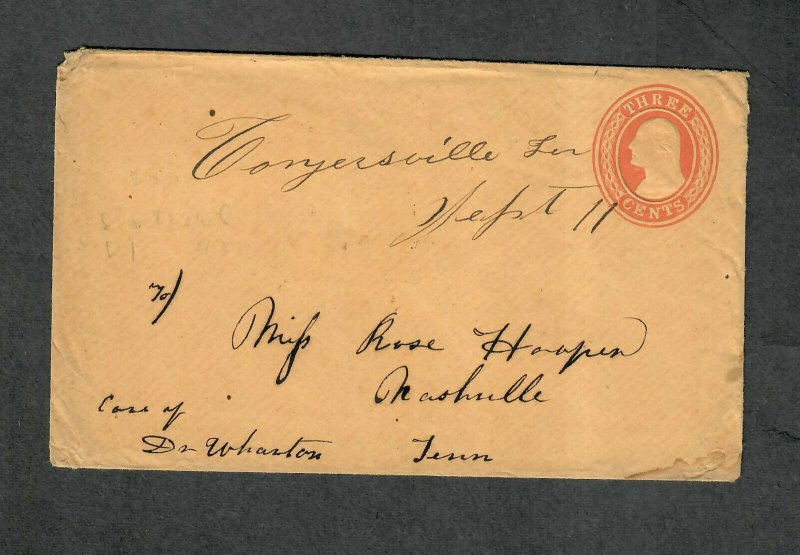 THREE
CENTS
Conyersville Ten
Sept 11
To)
Miss Rose Hooper
Nashville
Care of
Dr Wharton Tenn